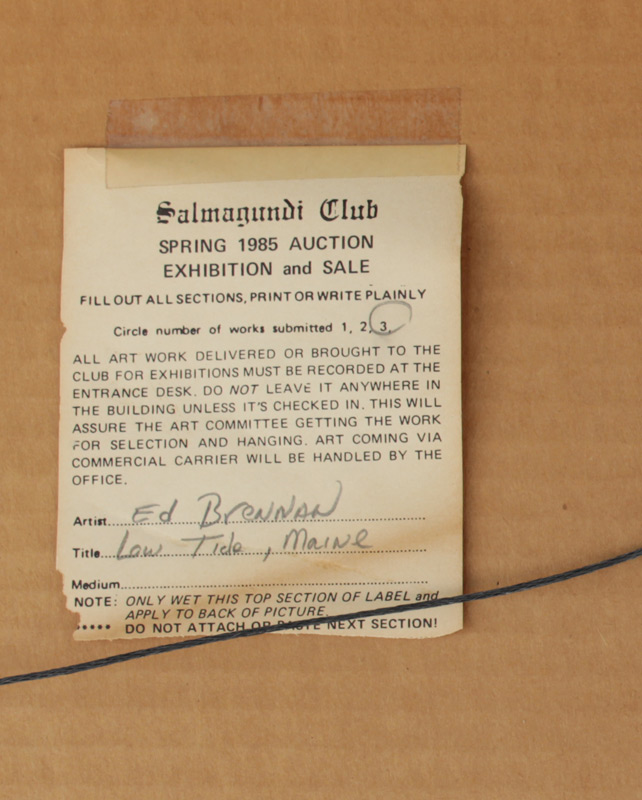 Salmagundi Club
SPRING 1985 AUCTION
EXHIBITION and SALE
FILL OUT ALL SECTIONS, PRINT OR WRITE PLAINLY
Circle number of works submitted 1, 2, 3.
ALL ART WORK DELIVERED OR BROUGHT TO THE
CLUB FOR EXHIBITIONS MUST BE RECORDED AT THE
ENTRANCE DESK. DO NOT LEAVE IT ANYWHERE IN
THE BUILDING UNLESS IT'S CHECKED IN. THIS WILL
ASSURE THE ART COMMITTEE GETTING THE WORK
FOR SELECTION AND HANGING. ART COMING VIA
COMMERCIAL CARRIER WILL BE HANDLED BY THE
OFFICE.
Artist Ed Brennan
Title Low Tide, Maine
Medium
NOTE: ONLY WET THIS TOP SECTION OF LABEL and
APPLY TO BACK OF PICTURE.
***** DO NOT ATTACH OR PASTE NEXT SECTION!